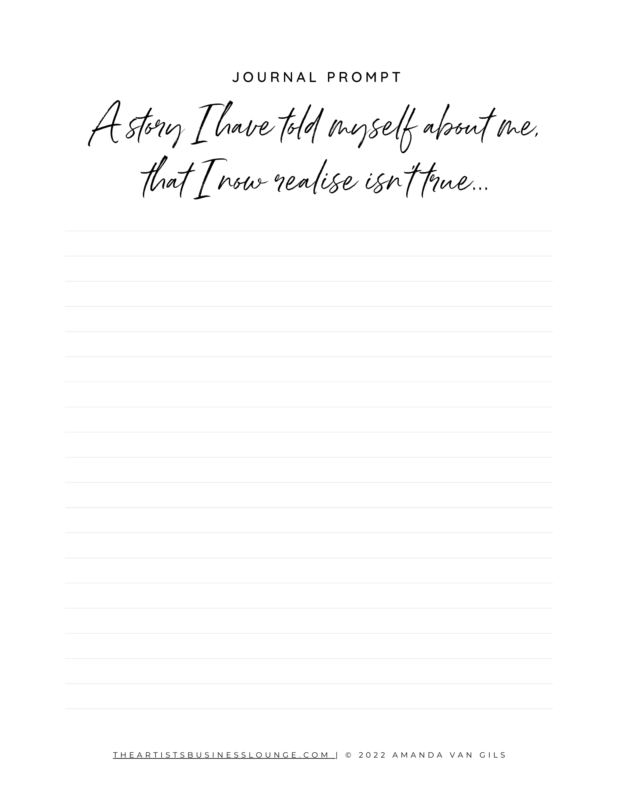 JOURNAL PROMPT
A story I have told myself about me,
that I now realise isn't true...
THEARTISTSBUSINESSLOUNGE.COM | © 2022 AMANDA VAN GILS